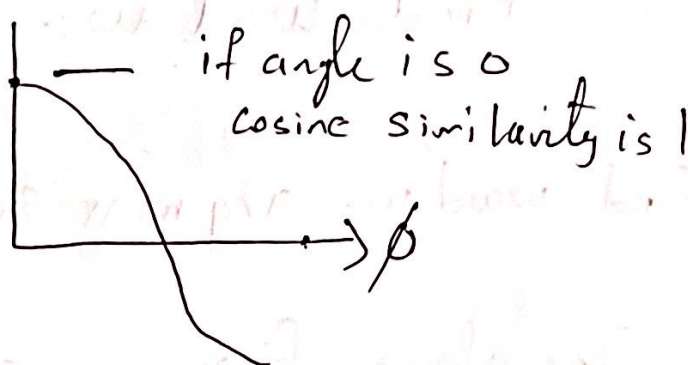 if angle is 0
cosine similarity is 1
ϕ